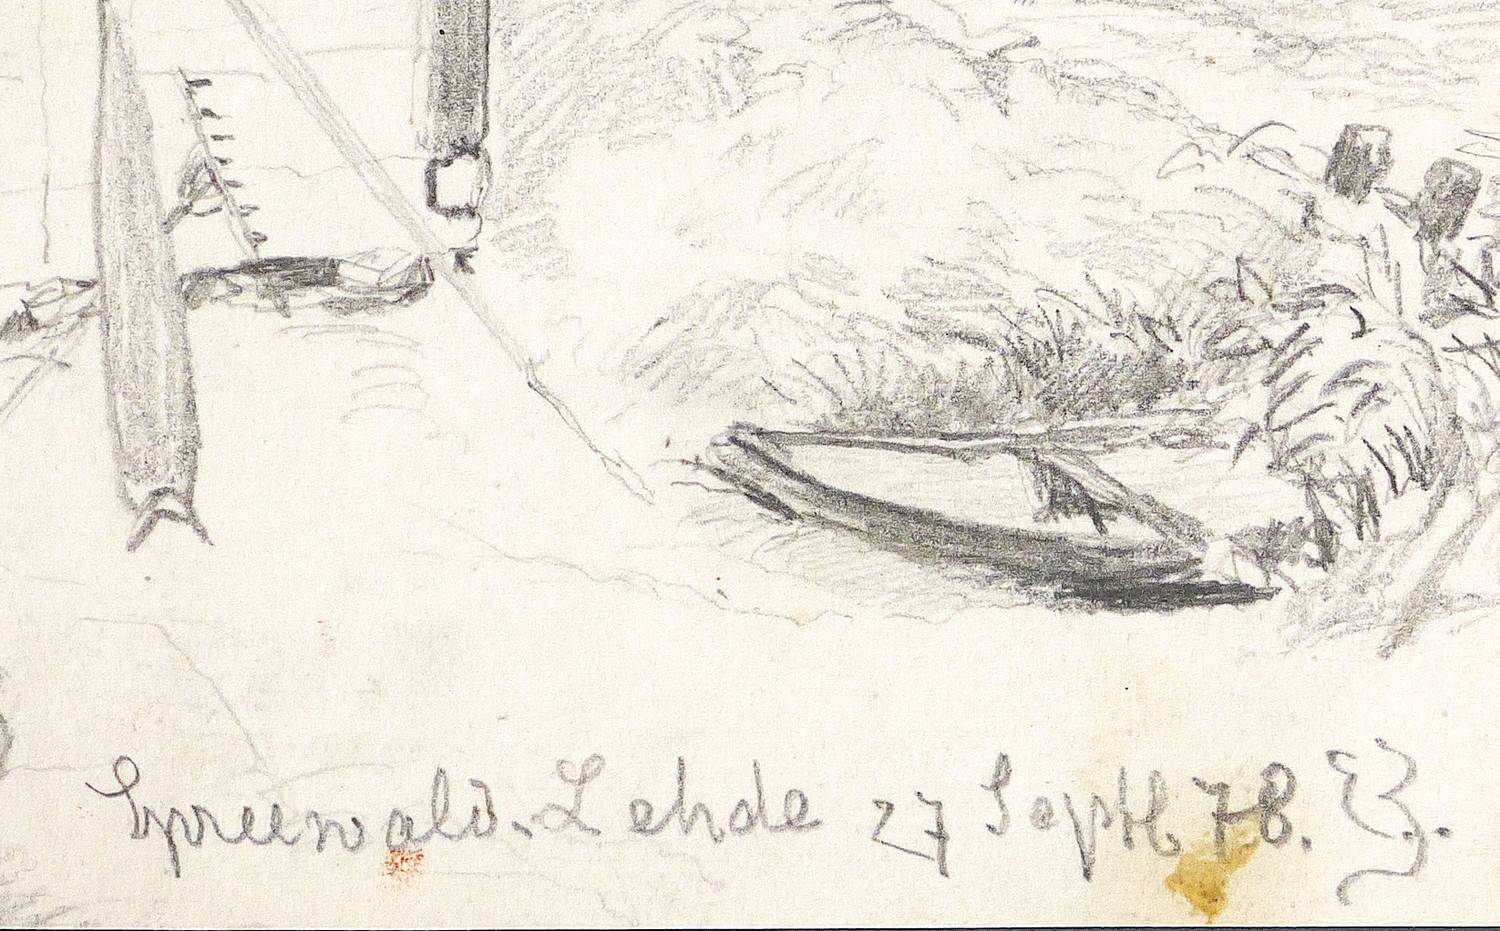 Spreewald. Lehde 27 Septb 78. B.